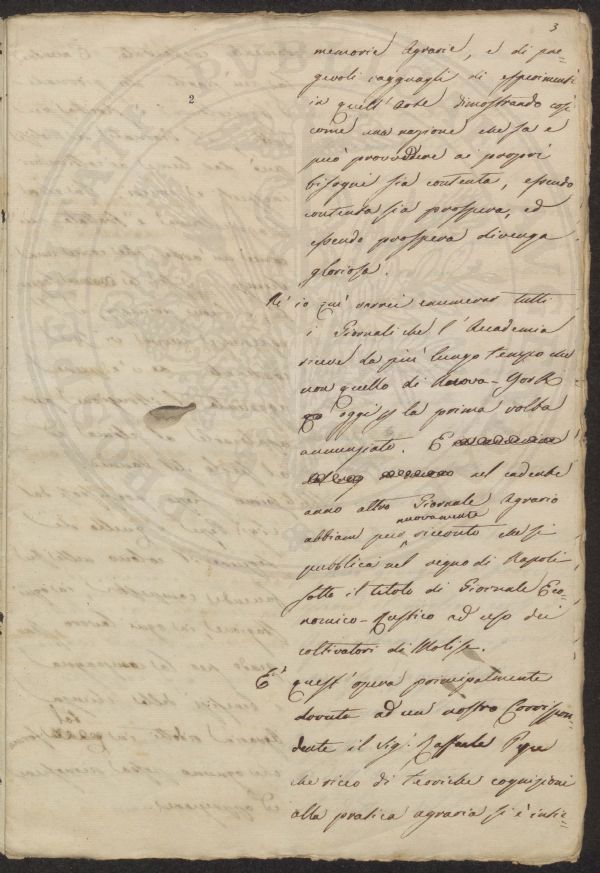 3
2
memorie Agrarie, e di pre=
gevoli ragguagli di esperimenti
in quell'Arte dimostrando così
come una nazione che sa e
può provvedere ai proprj
bisogni sia contenta, essendo
contenta sia prospera, ed
essendo prospera divenga
gloriosa.
Nè io quì vorrei enumerar tutti
i Giornali che l'Accademia
riceve da più lungo tempo che
non quello di Nuova-York
oggi la prima volta
annunziato. E
nel cadente
anno altro Giornale Agrario
abbiam pur nuovamente ricevuto che si
pubblica nel regno di Napoli
sotto il titolo di Giornale Eco=
nomico-Rustico ad uso dei
coltivatori di Molise.
E' quest'opera principalmente
dovuta ad un nostro Corrispon=
dente il Sig.r Raffaele Pepe
che ricco di teoriche cognizioni
alla pratica agraria si è intie=